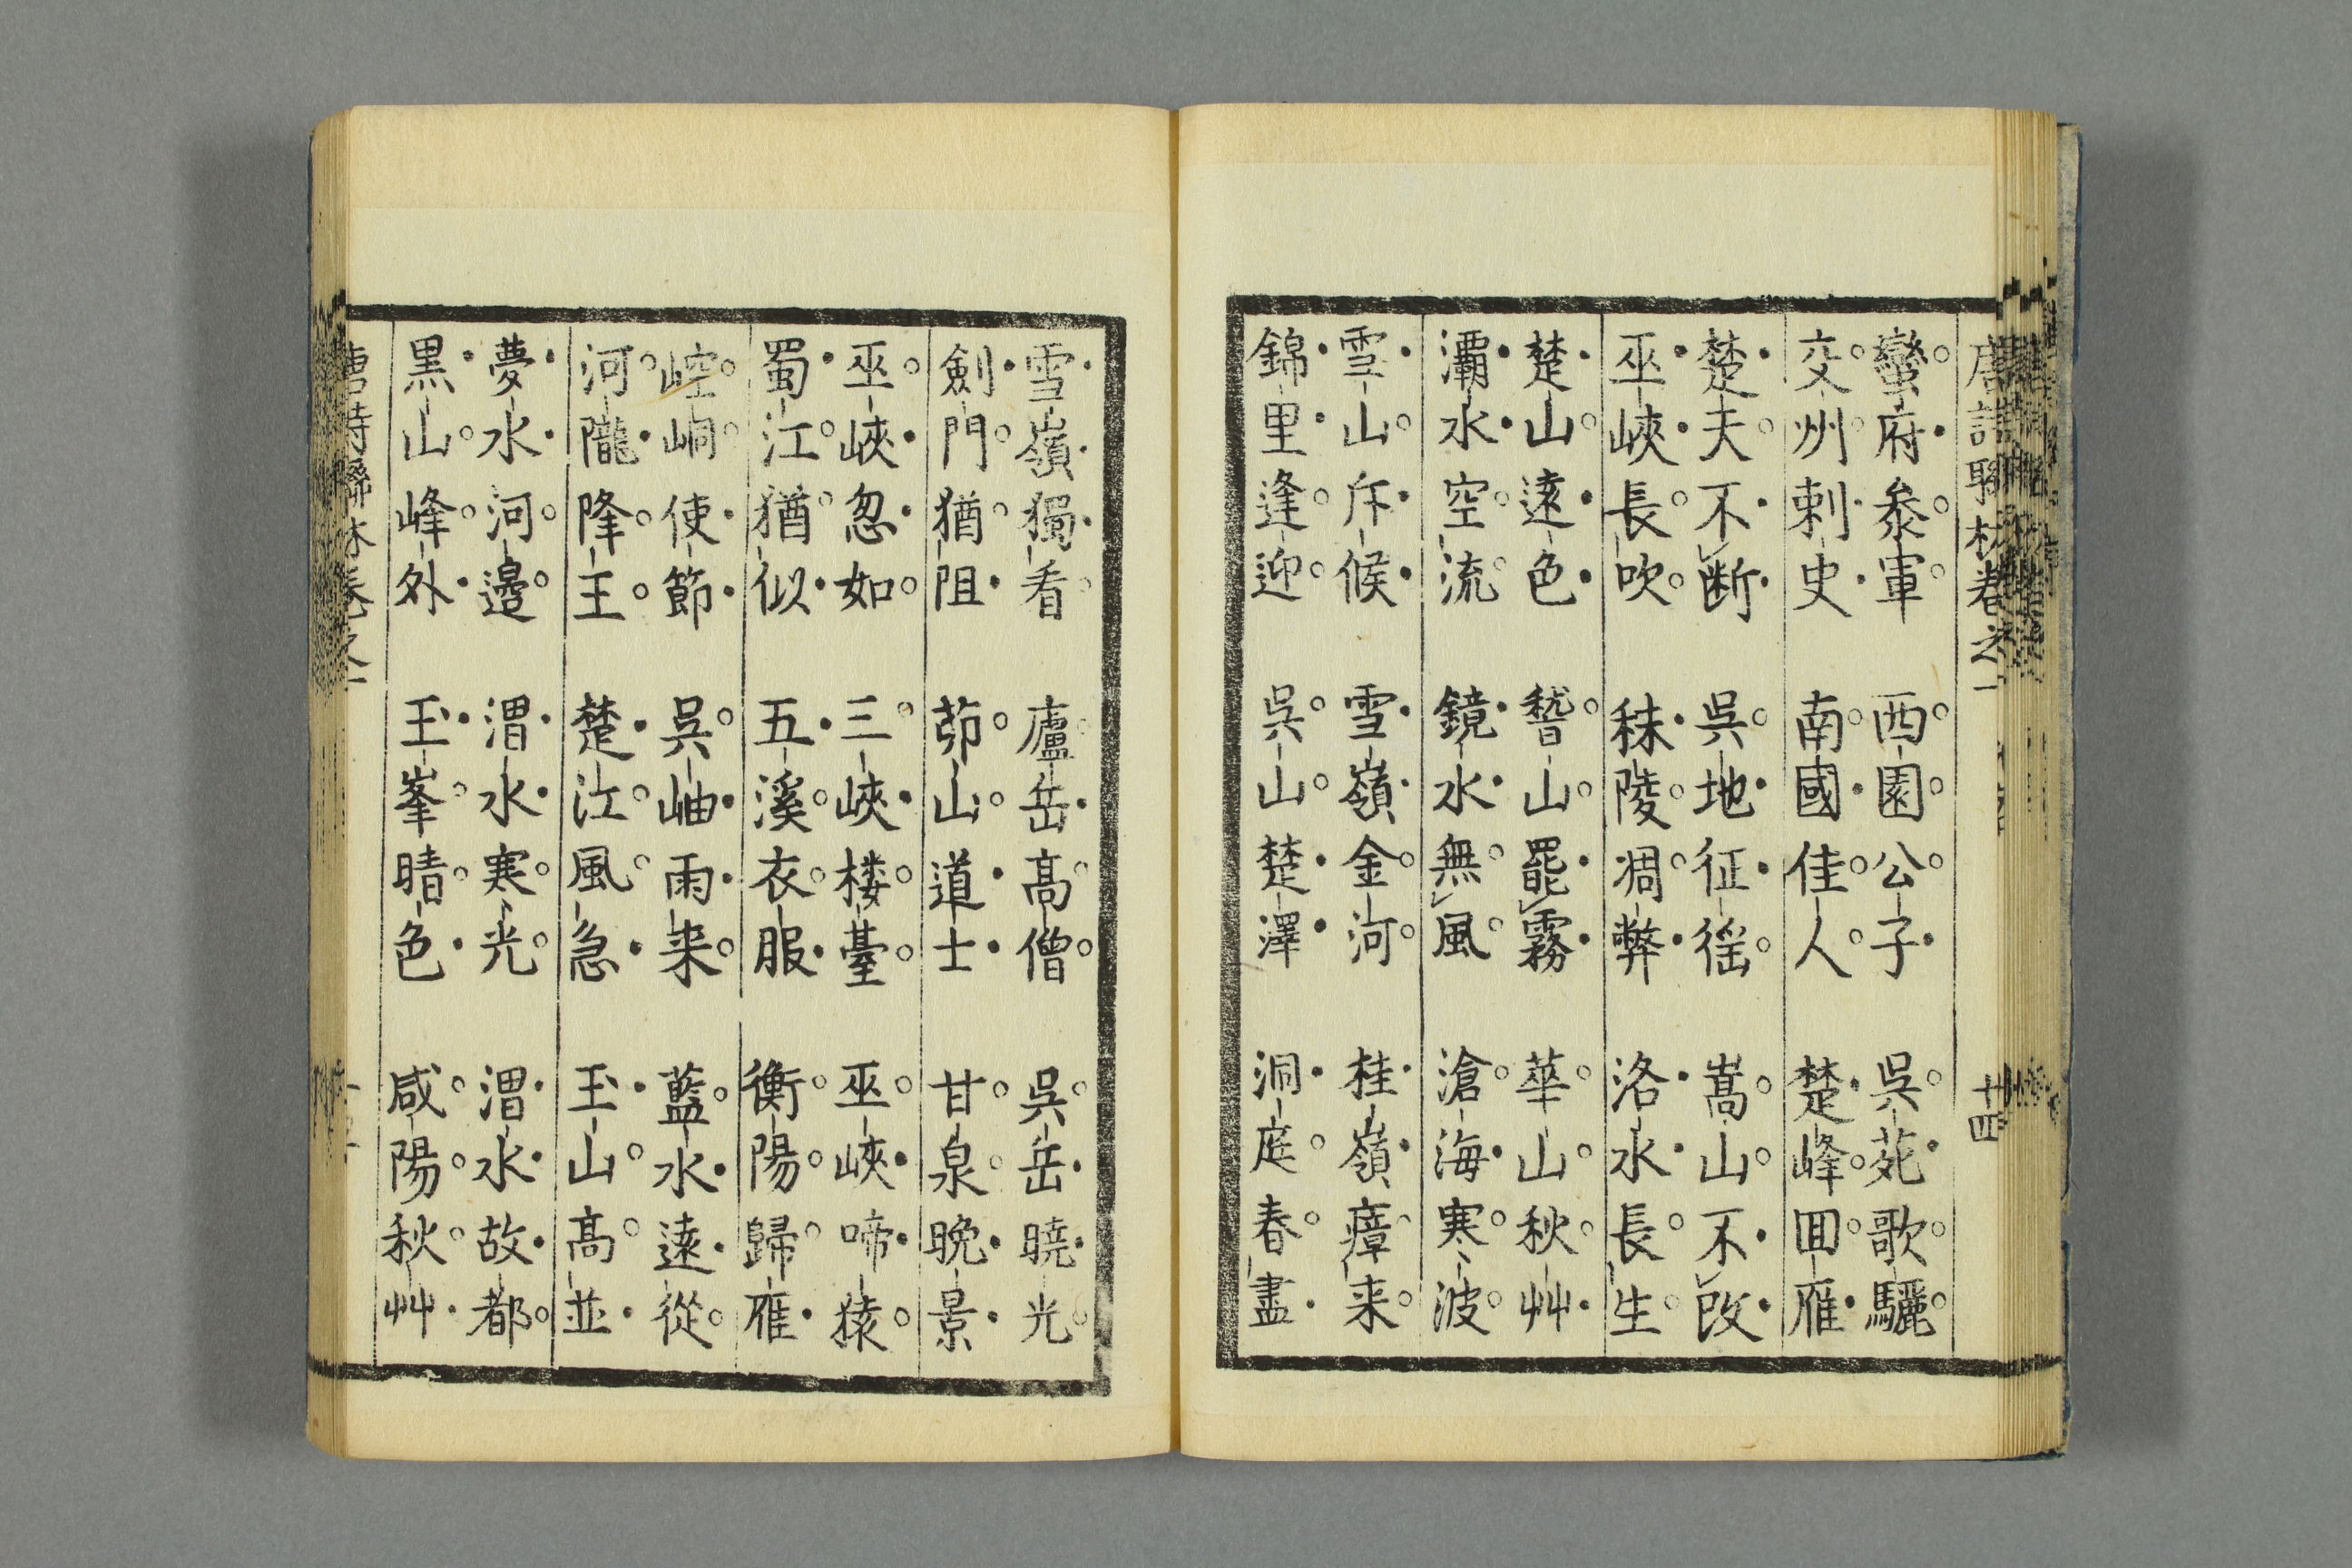 蠻府叅軍 西園公子 吳苑歌驪
交州刺史 南國佳人 楚峰囬雁
楚天不断 吳地征徭 嵩山不改
巫峽長吹 秣陵凋弊 洛水長生
楚山遠色 嵆山罷霧 華山秋艸
灞水空流 鏡水無風 滄海寒波
雪山斥候 雪嶺金河 桂嶺瘴来
錦里逢迎 吳山楚澤 洞庭春盡
雪嶺獨看 廬岳高僧 吳岳曉光
劍門猶阻 茆山道士 甘泉晩景
巫峽忽如 三峽楼臺 巫峽啼猿
蜀江猶似 五溪衣服 衡陽歸雁
崆峒使節 吳岫雨来 藍水遠從
河隴降王 楚江風急 玉山高並
夢水河邊 渭水寒光 渭水故都
黒山峰外 玉峯晴色 咸陽秋艸